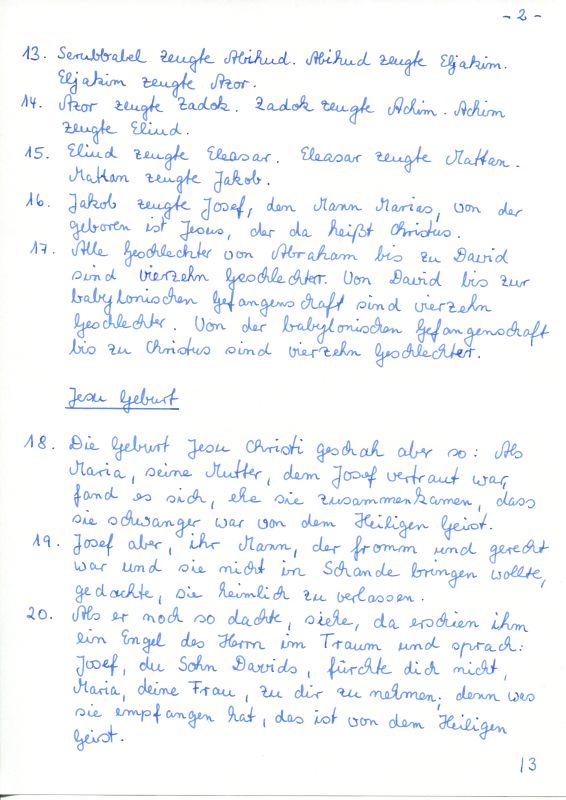 - 2 -
13. Serubbabel zeugte Abihud. Abihud zeugte Eljakim.
Eljakim zeugte Azor.
14. Azor zeugte Zadok. Zadok zeugte Achim. Achim
zeugte Eliud.
15. Eliud zeugte Eleasar. Eleasar zeugte Mattan.
Mattan zeugte Jakob.
16. Jakob zeugte Josef, den Mann Marias, von der
geboren ist Jesus, der da heißt Christus.
17. Alle Geschlechter von Abraham bis zu David
sind vierzehn Geschlechter. Von David bis zur
babylonischen Gefangenschaft sind vierzehn
Geschlechter. Von der babylonischen Gefangenschaft
bis zu Christus sind vierzehn Geschlechter.
Jesu Geburt
18. Die Geburt Jesu Christi geschah aber so: Als
Maria, seine Mutter, dem Josef vertraut war,
fand es sich, ehe sie zusammenkamen, dass
sie schwanger war von dem Heiligen Geist.
19. Josef aber, ihr Mann, der fromm und gerecht
war und sie nicht in Schande bringen wollte,
gedachte, sie heimlich zu verlassen.
20. Als er noch so dachte, siehe, da erschien ihm
ein Engel des Herrn im Traum und sprach:
Josef, du Sohn Davids, fürchte dich nicht,
Maria, deine Frau, zu dir zu nehmen; denn was
sie empfangen hat, das ist von dem Heiligen
Geist.
13